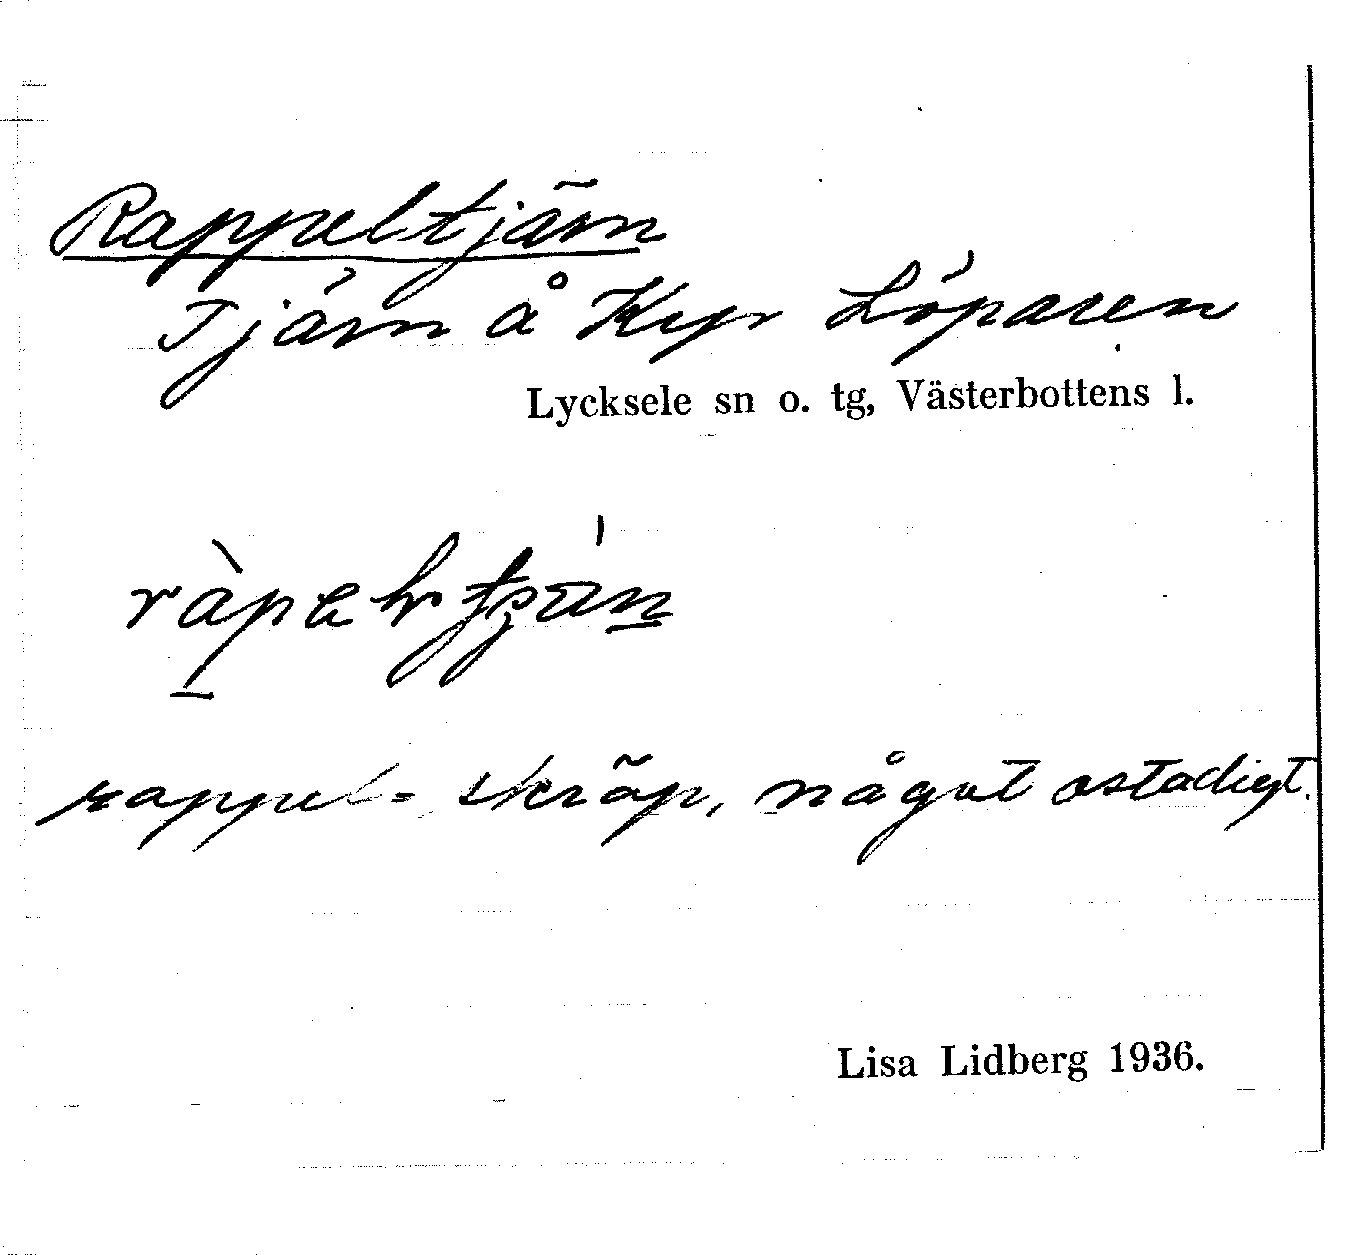 Rappeltjärn
Tjärn å Kpr Löparen
Lycksele sn o. tg, Västerbottens l.
rappel = skräp, något ostadigt.
Lisa Lidberg 1936.